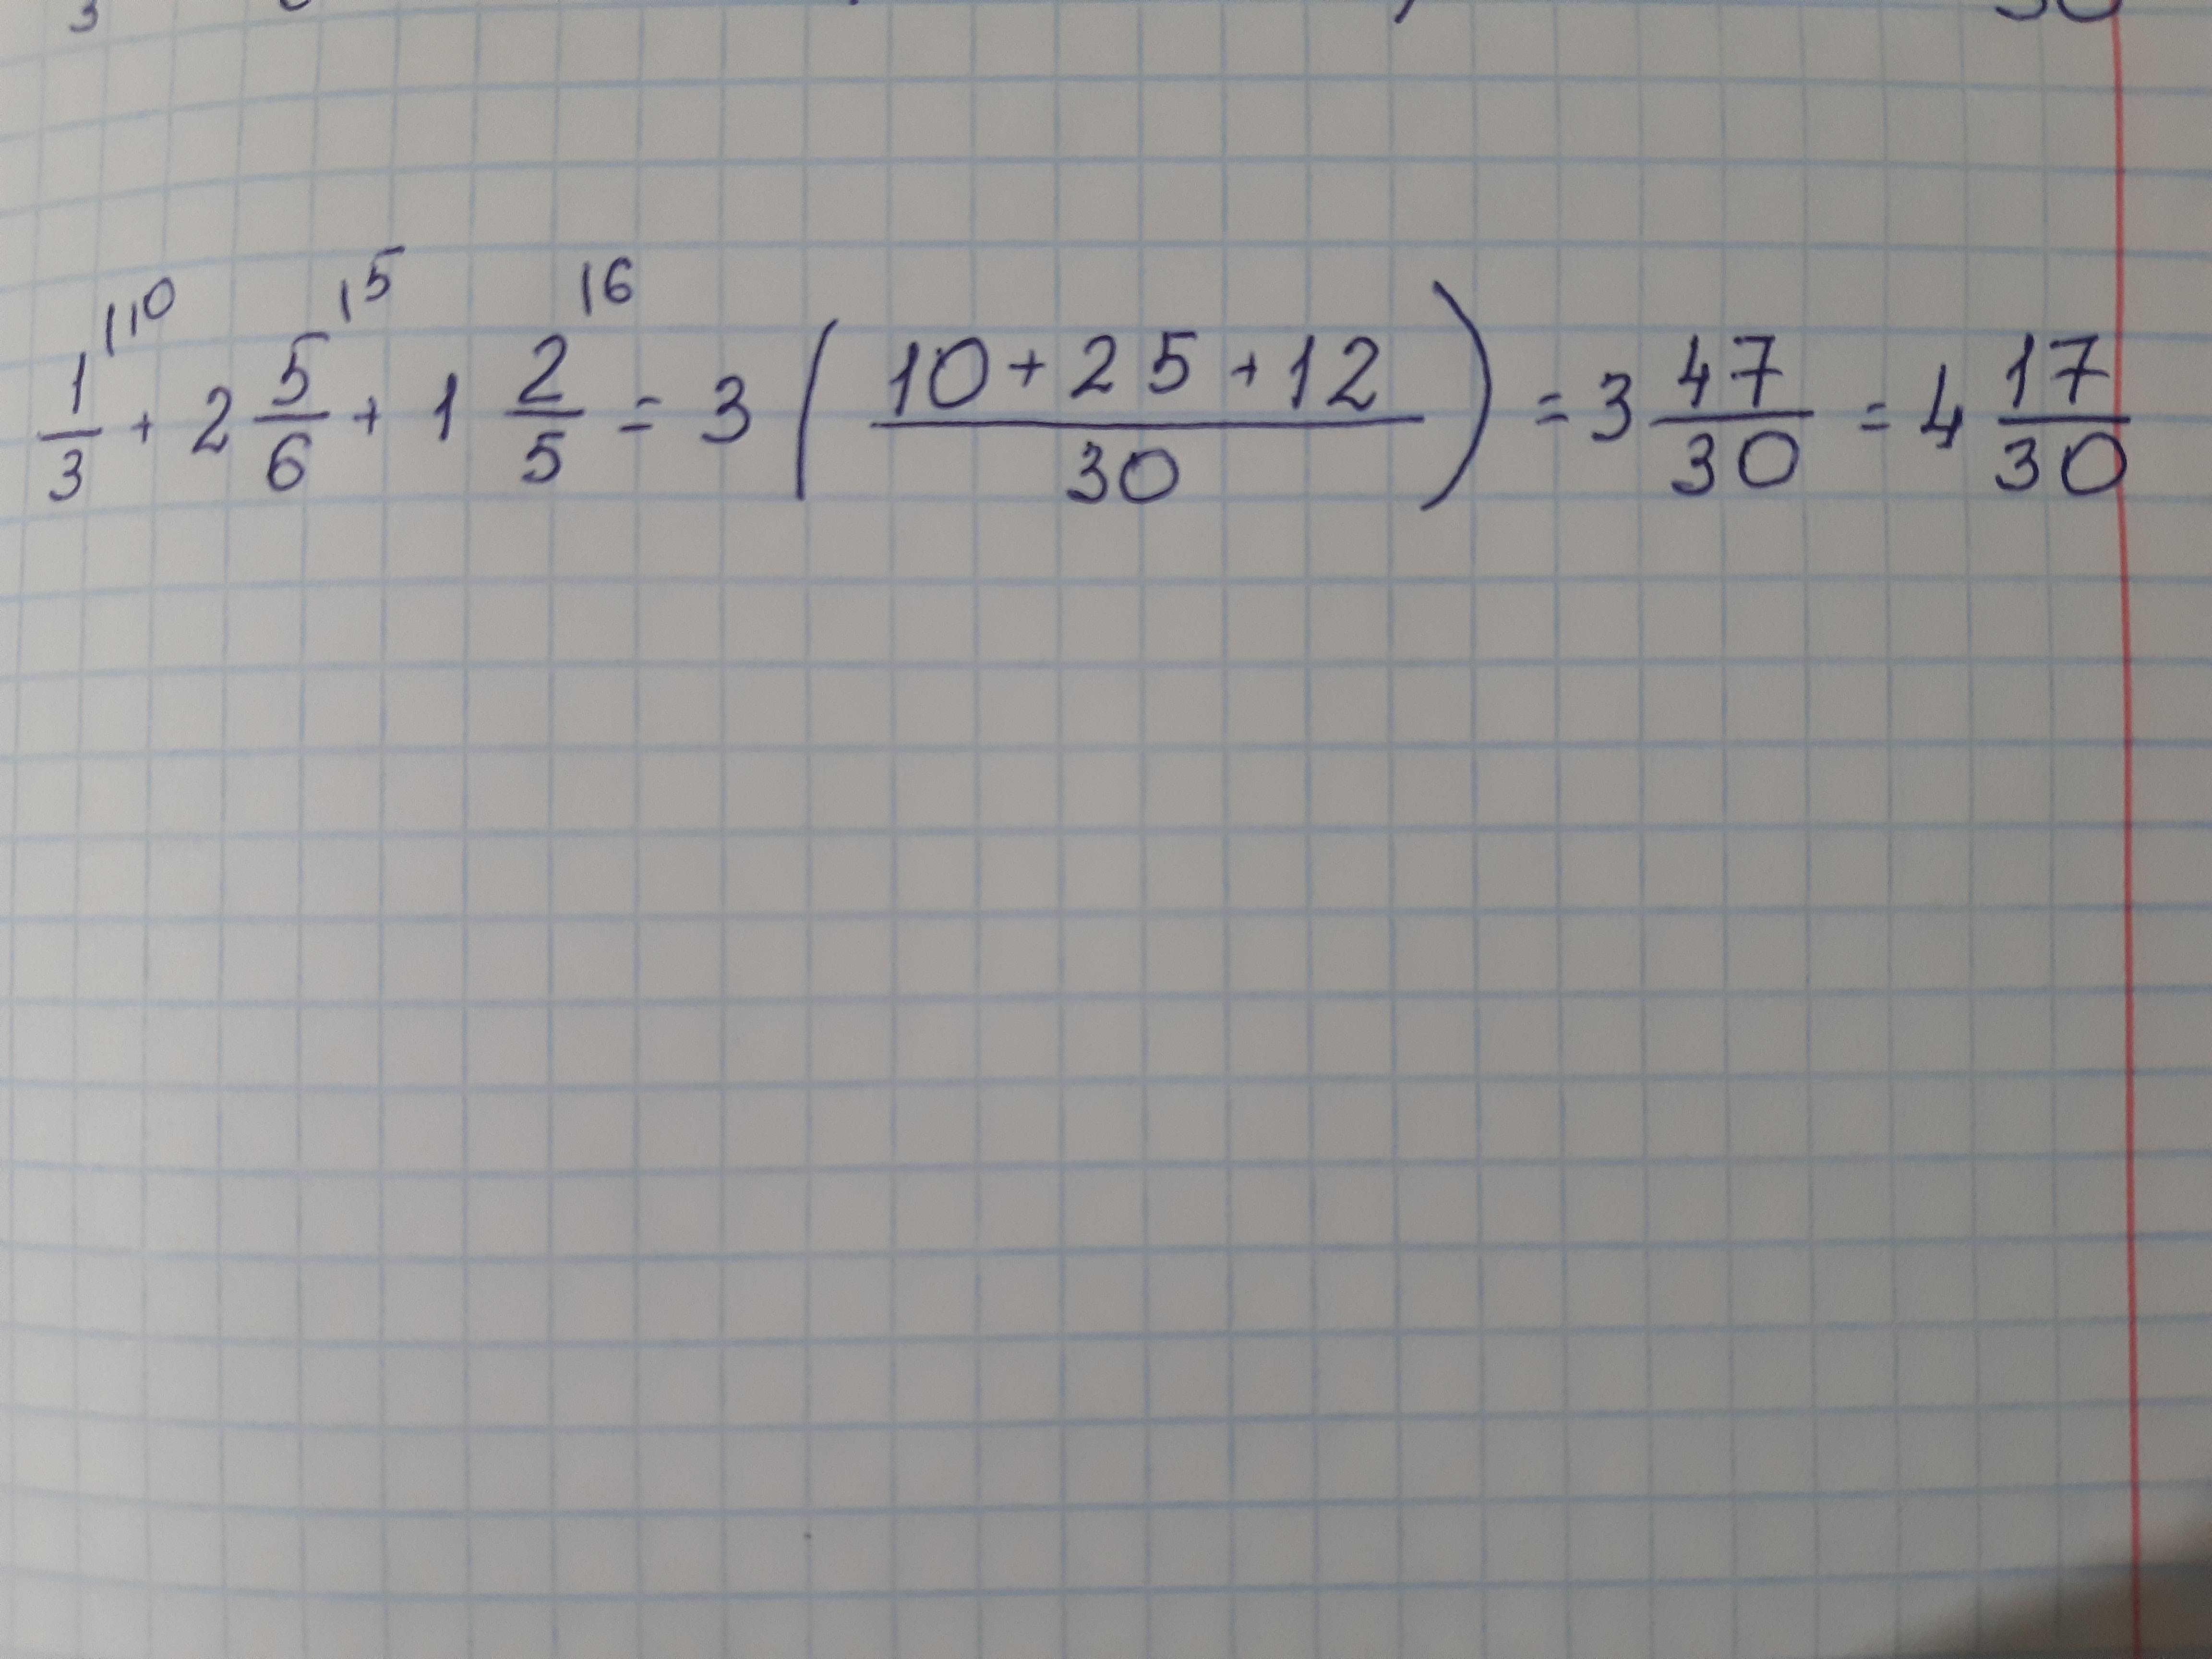 1/3 |10 + 2 5/6 |5 + 1 2/5 |6 = 3 ( (10 + 25 + 12)/30 ) = 3 47/30 = 4 17/30